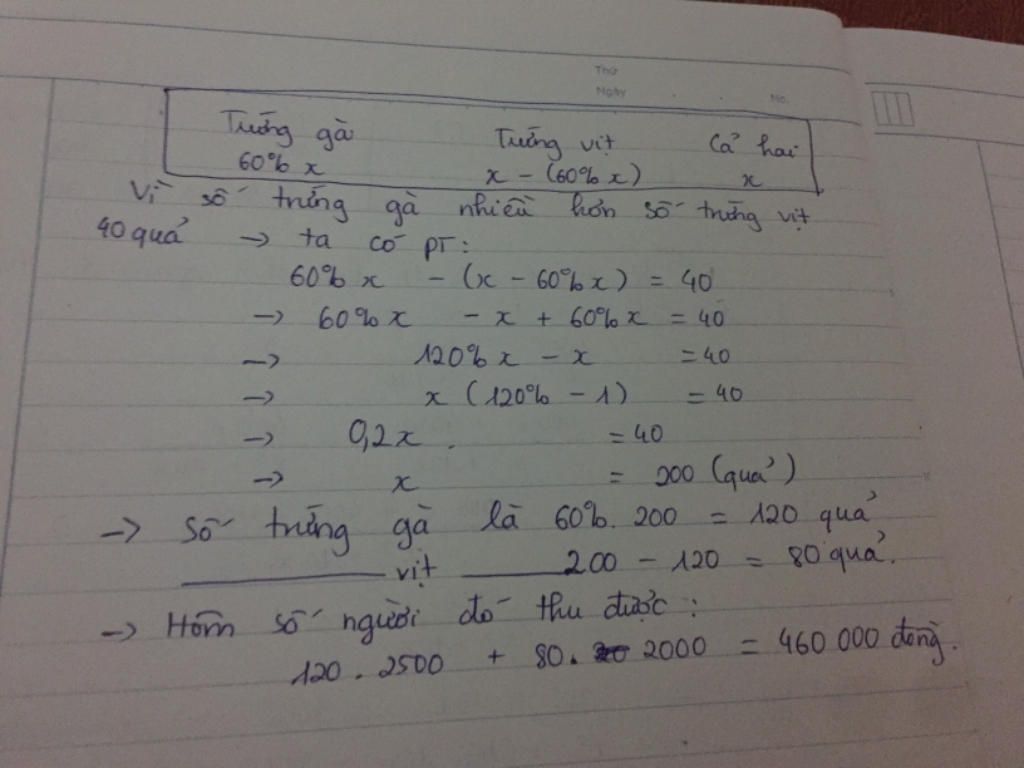 Thứ
Ngày No.
Trứng gà Trứng vịt Cả hai
60% x x - (60% x) x
Vì số trứng gà nhiều hơn số trứng vịt
40 quả → ta có PT:
60% x - (x - 60% x) = 40
→ 60% x - x + 60% x = 40
→ 120% x - x = 40
→ x (120% - 1) = 40
→ 0,2x = 40
→ x = 200 (quả)
→ Số trứng gà là 60%. 200 = 120 quả
vịt 200 - 120 = 80 quả.
→ Hôm số người đó thu được:
120 . 2500 + 80. 2000 = 460 000 đồng.